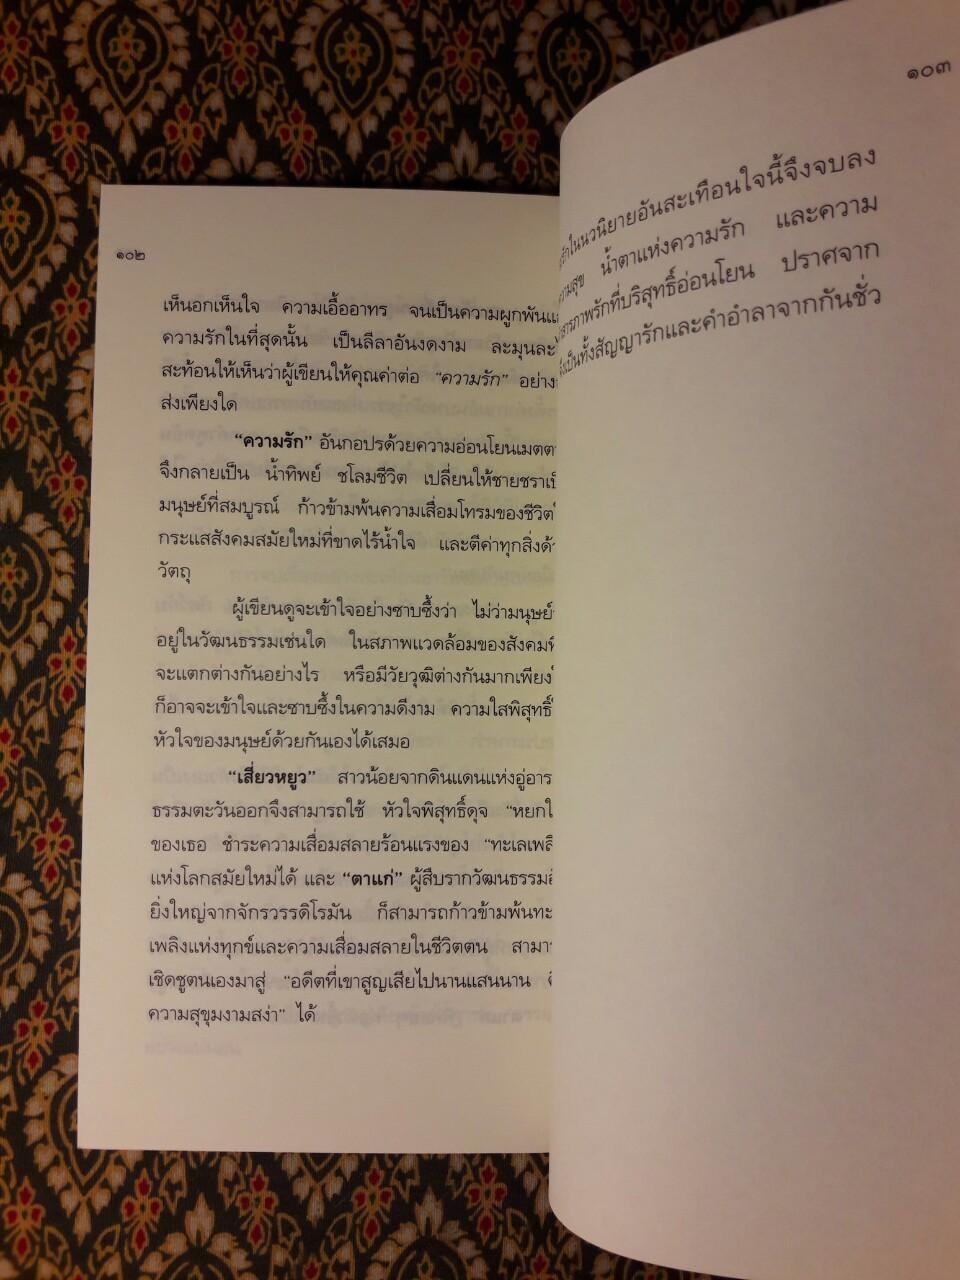 ๑๐๒
เห็นอกเห็นใจ ความเอื้ออาทร จนเป็นความผูกพันแ
ความรักในที่สุดนั้น เป็นลีลาอันงดงาม ละมุนละ
สะท้อนให้เห็นว่าผู้เขียนให้คุณค่าต่อ “ความรัก” อย่าง
ส่งเพียงใด
“ความรัก” อันกอปรด้วยความอ่อนโยนเมตต
จึงกลายเป็น น้ำทิพย์ ชโลมชีวิต เปลี่ยนให้ชายชราเ
มนุษย์ที่สมบูรณ์ ก้าวข้ามพ้นความเสื่อมโทรมของชีวิต
กระแสสังคมสมัยใหม่ที่ขาดไร้น้ำใจ และตีค่าทุกสิ่งด้
วัตถุ
ผู้เขียนดูจะเข้าใจอย่างซาบซึ้งว่า ไม่ว่ามนุษย์
อยู่ในวัฒนธรรมเช่นใด ในสภาพแวดล้อมของสังคมที
จะแตกต่างกันอย่างไร หรือมีวัยวุฒิต่างกันมากเพียง
ก็อาจจะเข้าใจและซาบซึ้งในความดีงาม ความใสพิสุทธิ์
หัวใจของมนุษย์ด้วยกันเองได้เสมอ
“เสี่ยวหยูว” สาวน้อยจากดินแดนแห่งอู่อาร
ธรรมตะวันออกจึงสามารถใช้ หัวใจพิสุทธิ์ดุจ “หยกใ
ของเธอ ชำระความเสื่อมสลายร้อนแรงของ “ทะเลเพลิ
แห่งโลกสมัยใหม่ได้ และ “ตาแก่” ผู้สืบรากวัฒนธรรมอั
ยิ่งใหญ่จากจักรวรรดิโรมัน ก็สามารถก้าวข้ามพ้นทะ
เพลิงแห่งทุกข์และความเสื่อมสลายในชีวิตตน สามาร
เชิดชูตนเองมาสู่ “อดีตที่เขาสูญเสียไปนานแสนนาน
ความสุขุมงามสง่า” ได้
๑๐๓
รักในนวนิยายอันสะเทือนใจนี้จึงจบลง
ความสุข น้ำตาแห่งความรัก และความ
สารภาพรักที่บริสุทธิ์อ่อนโยน ปราศจาก
เป็นทั้งสัญญารักและคำอำลาจากกันชั่ว